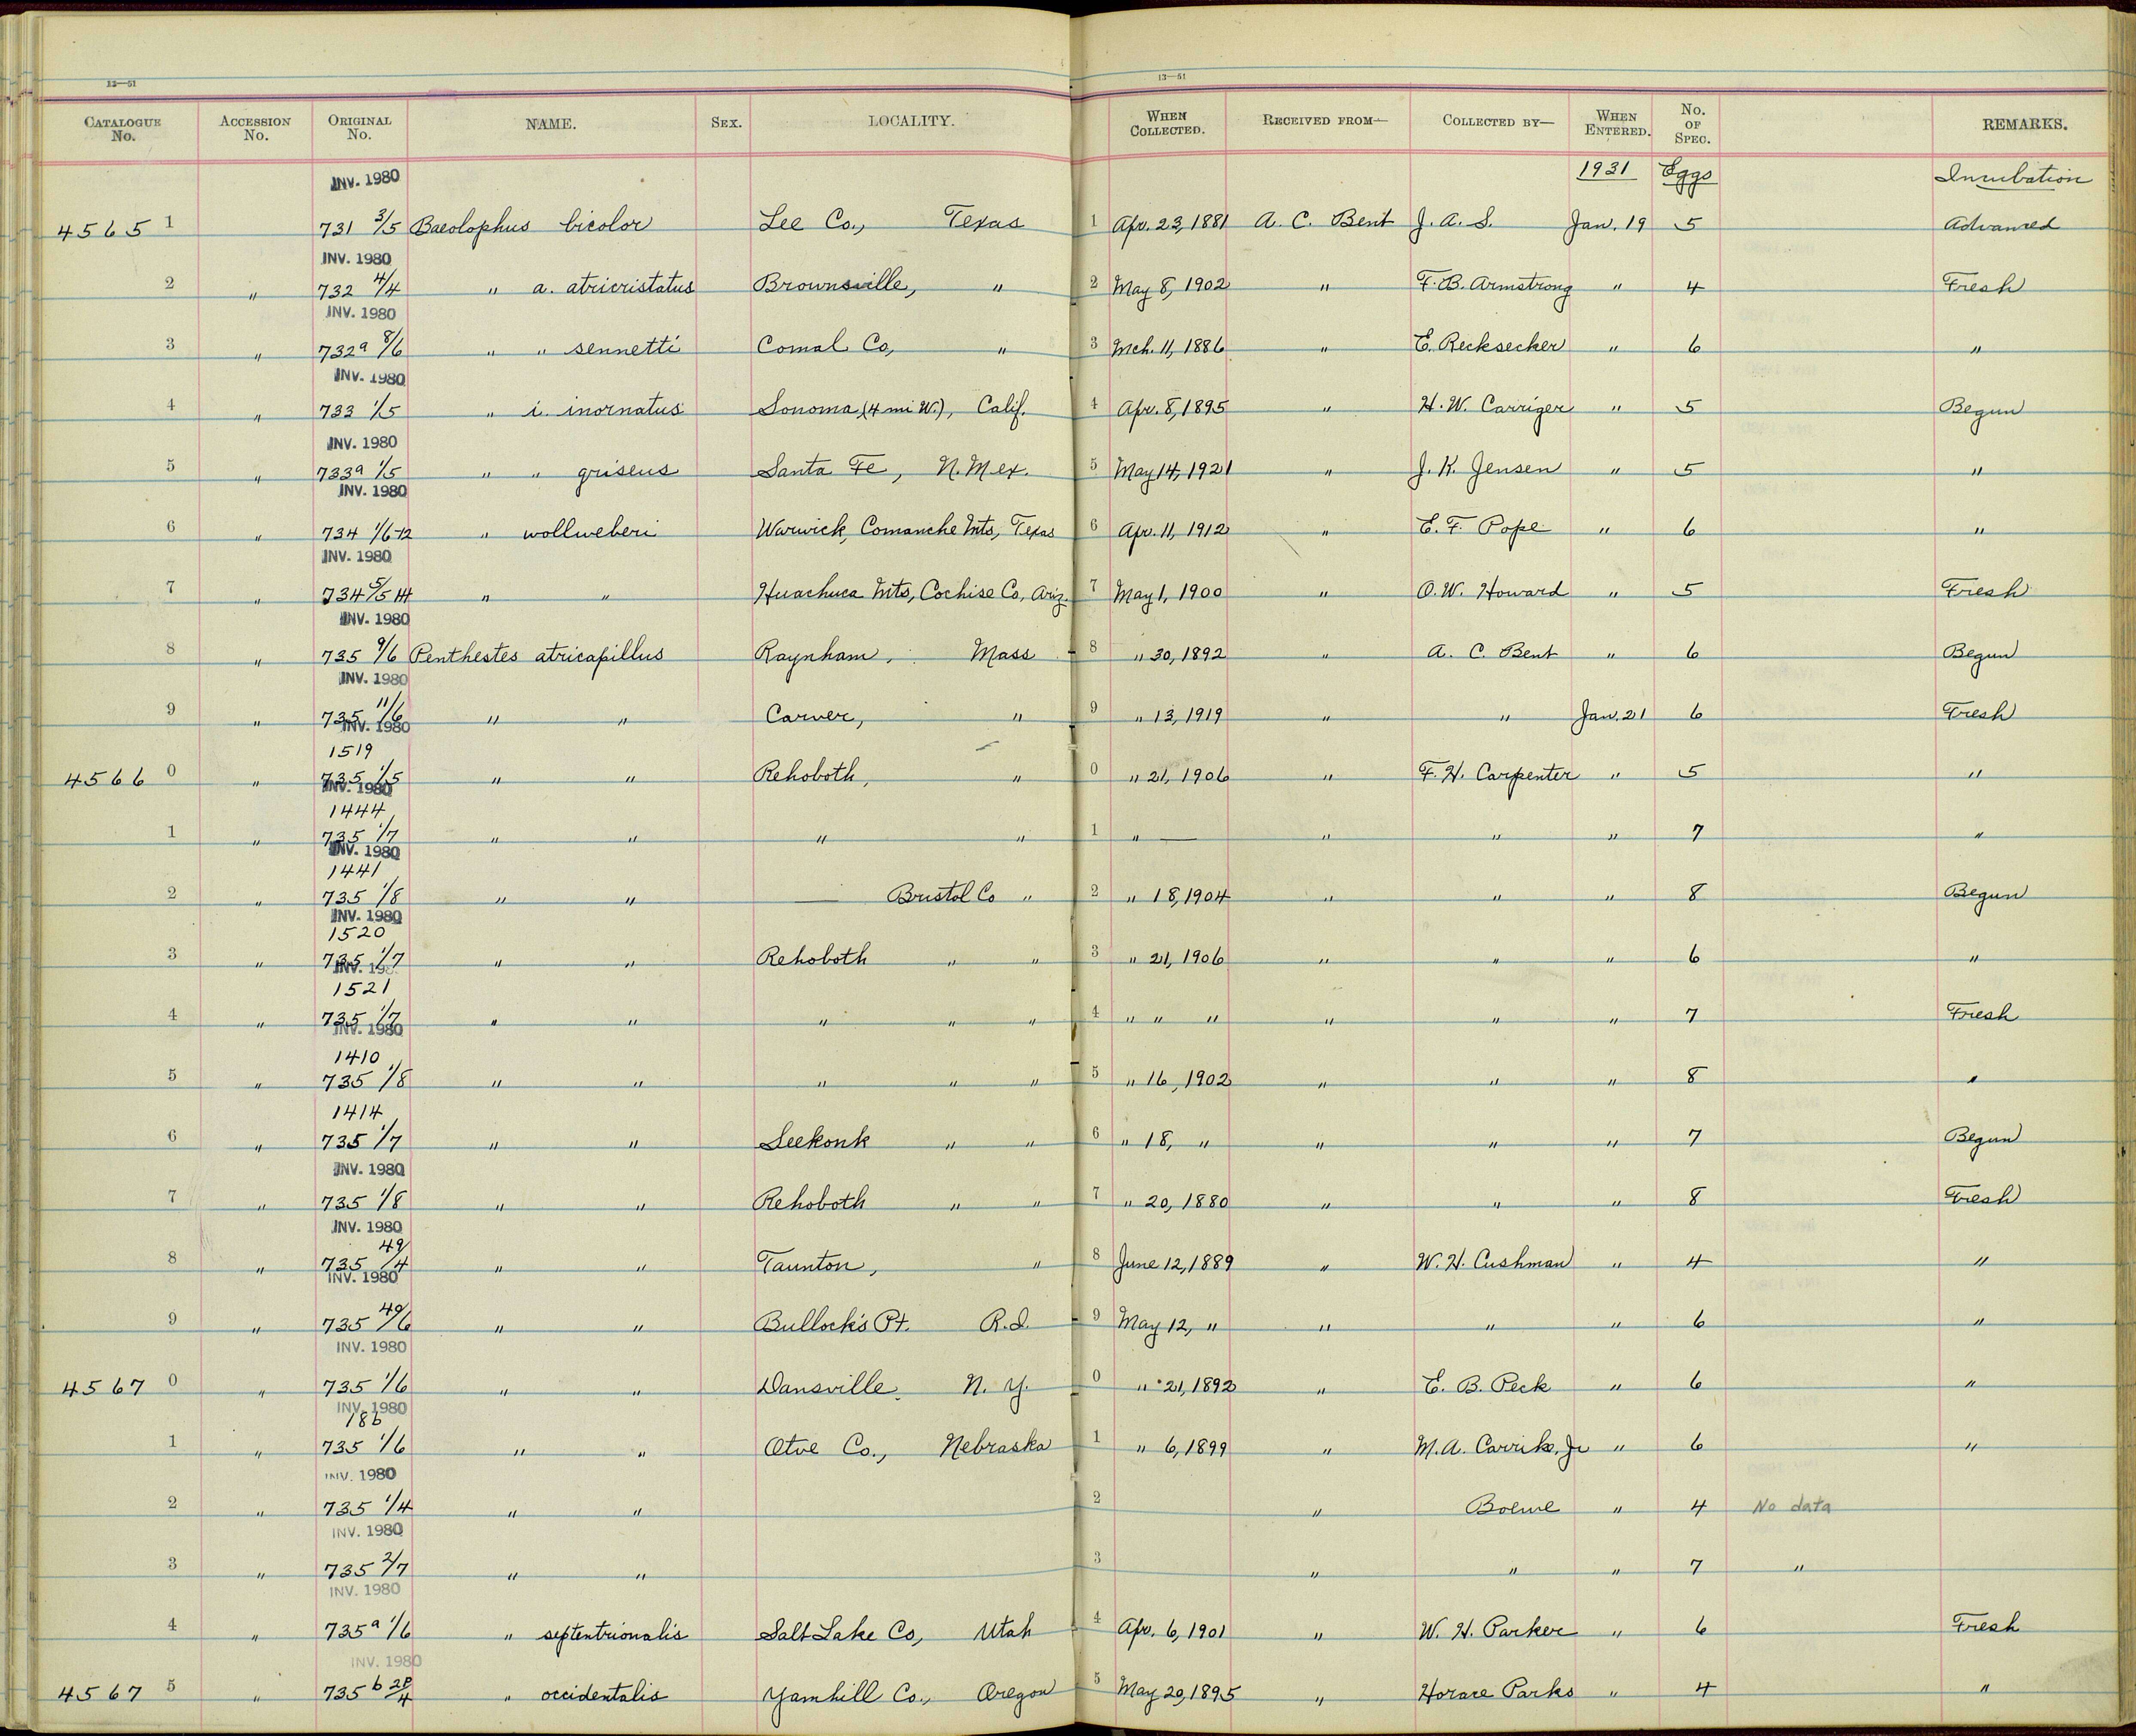 13—51 13—51
CATALOGUE No. ACCESSION No. ORIGINAL No. NAME. SEX. LOCALITY. WHEN COLLECTED. RECEIVED FROM— COLLECTED BY— WHEN ENTERED. No. OF SPEC. REMARKS.
INV. 1980 1931 Eggs Incubation
4565 1 731 3/5 Baeolophus bicolor Lee Co., Texas 1 Apr. 23, 1881 A. C. Bent J. A. S. Jan. 19 5 Advanced
INV. 1980
2 " 732 4/4 " a. atricristatus Brownsville, " 2 May 8, 1902 " F. B. Armstrong " 4 Fresh
INV. 1980
3 " 732a 8/6 " " sennetti Comal Co, " 3 Mch. 11, 1886 " E. Recksecker " 6 "
INV. 1980
4 " 733 1/5 " i. inornatus Sonoma, (4 mi W.), Calif. 4 Apr. 8, 1895 " H. W. Carriger " 5 Begun
INV. 1980
5 " 733a 1/5 " " griseus Santa Fe, N. Mex. 5 May 14, 1921 " J. K. Jensen " 5 "
INV. 1980
6 " 734 1/6-12 " wollweberi Warwick, Comanche Mts, Texas 6 Apr. 11, 1912 " E. F. Pope " 6 "
INV. 1980
7 " 734 5/5 " " Huachuca Mts, Cochise Co, Ariz. 7 May 1, 1900 " O. W. Howard " 5 Fresh
INV. 1980
8 " 735 9/6 Penthestes atricapillus Raynham, Mass 8 " 30, 1892 " A. C. Bent " 6 Begun
INV. 1980
9 " 735 11/6 " " Carver, " 9 " 13, 1919 " " Jan. 21 6 Fresh
INV. 1980
1519
4566 0 " 735 1/5 " " Rehoboth, " 0 " 21, 1906 " F. H. Carpenter " 5 "
INV. 1980
1444
1 " 735 1/7 " " " " 1 " — " " " 7 "
INV. 1980
1441
2 " 735 1/8 " " — Bristol Co " 2 " 18, 1904 " " " 8 Begun
INV. 1980
1520
3 " 735 1/7 " " Rehoboth " " 3 " 21, 1906 " " " 6 "
INV. 198
1521
4 " 735 1/7 " " " " " 4 " " " " " " 7 Fresh
INV. 1980
1410
5 " 735 1/8 " " " " " 5 " 16, 1902 " " " 8 "
1414
6 " 735 1/7 " " Seekonk " " 6 " 18, " " " " 7 Begun
INV. 1980
7 " 735 1/8 " " Rehoboth " " 7 " 20, 1880 " " " 8 Fresh
INV. 1980
8 " 735 49/4 " " Taunton, " 8 June 12, 1889 " W. H. Cushman " 4 "
INV. 1980
9 " 735 49/6 " " Bullock's Pt. R.I. 9 May 12, " " " " 6 "
INV. 1980
4567 0 " 735 1/6 " " Dansville, N. Y. 0 " 21, 1892 " E. B. Peck " 6 "
INV. 1980
186
1 " 735 1/6 " " Otoe Co., Nebraska 1 " 6, 1899 " M. A. Carrike, Jr " 6 "
INV. 1980
2 " 735 1/4 " " 2 " " 4 No data
INV. 1980
3 " 735 2/7 " " 3 " " " 7 "
INV. 1980
4 " 735a 1/6 " septentrionalis Salt Lake Co, Utah 4 Apr. 6, 1901 " W. H. Parker " 6 Fresh
INV. 1980
4567 5 " 735b 28/4 " occidentalis Yamhill Co., Oregon 5 May 20, 1895 " Horace Parks " 4 "